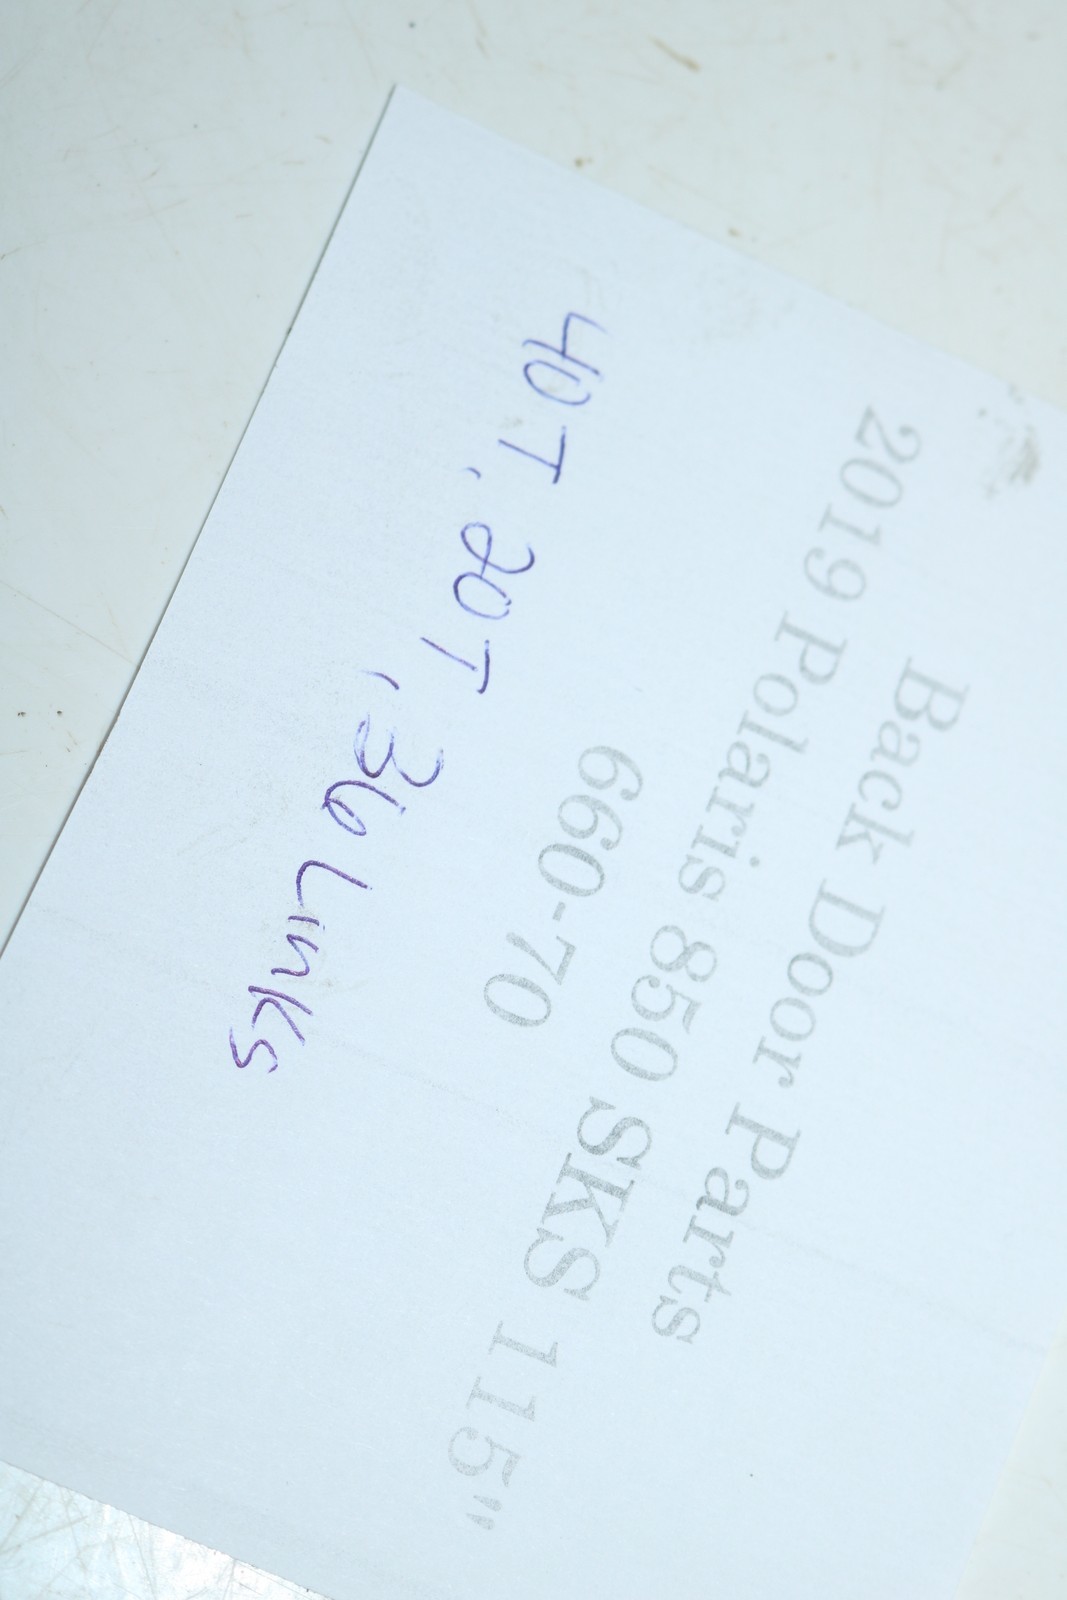 Back Door Parts
2019 Polaris 850 SKS 115"
660-70
40T, 20T, 36 Links